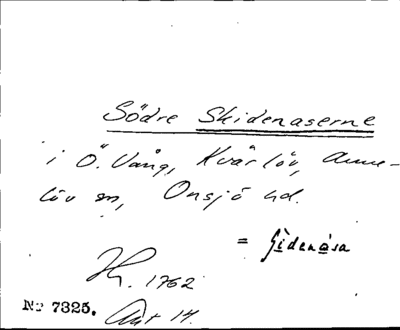 Södre Skidenaserne
i Ö. Vång, Kvärlöv, Anne-
löv sn, Onsjö hd.
= Sìdenåsa
H. 1762
Akt 14.
No 7325.